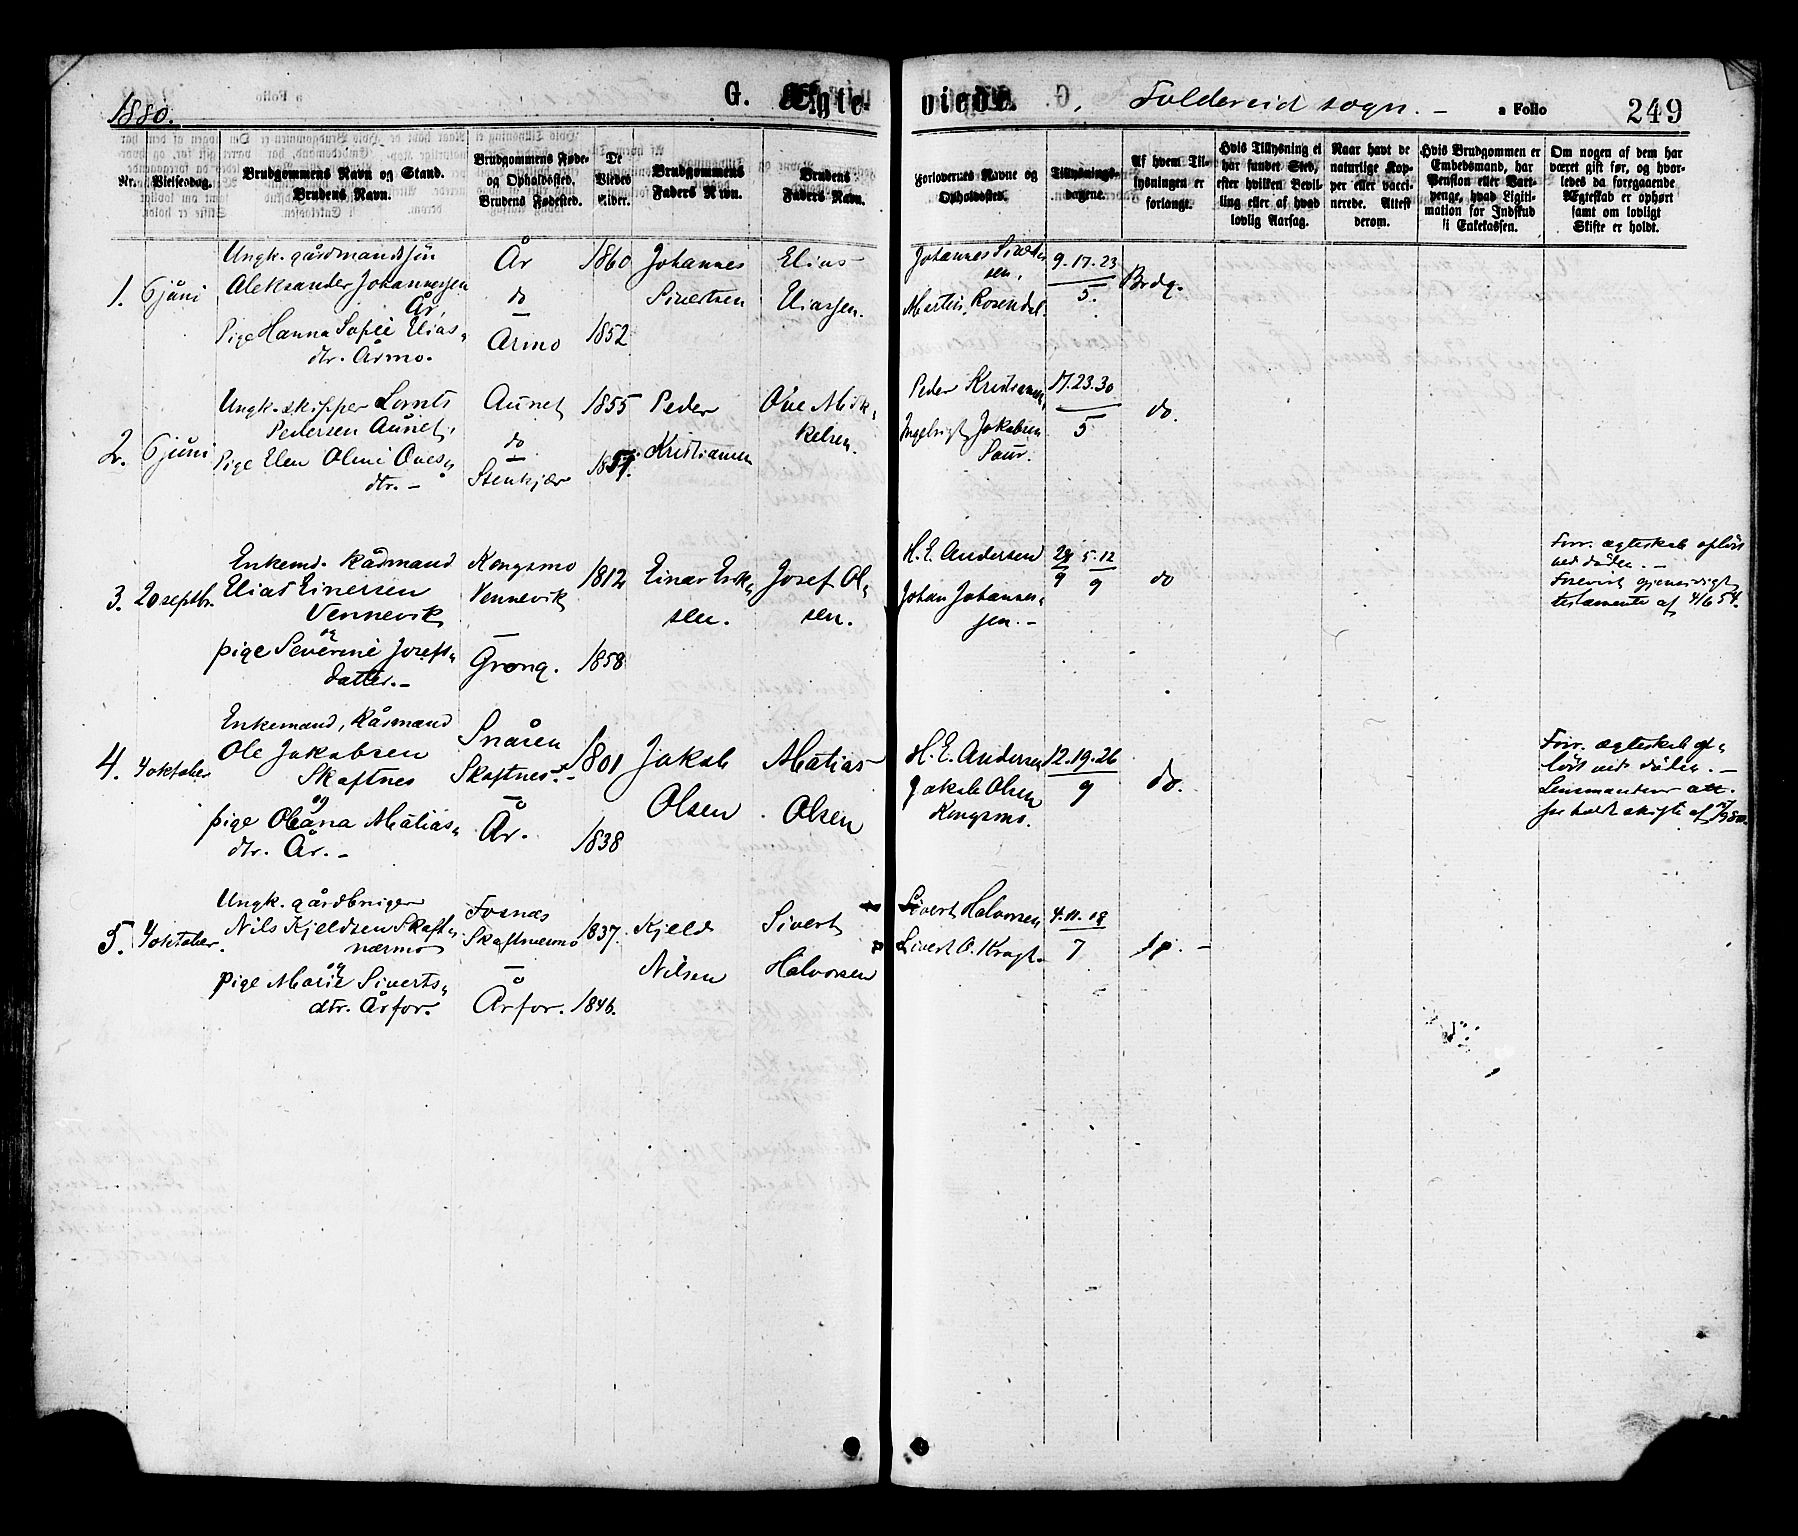 1880.
G. Ægte-
viede.
Foldereid sogn. -
a Folio
249
Nr.
Vielsesdag.
Brudgommens Navn og Stand.
Brudens Navn.
Brudgommens Føde-
og Opholdssted.
Brudens Fødested.
De
Viedes
Alder.
Brudgommens
Faders Navn.
Brudens
Faders Navn.
Forlovernes Navne og
Opholdssted.
Tillysnings-
dagene.
Af hvem Til-
lysningen er
forlangt.
Hvis Tillysning ei
har fundet Sted,
efter hvilken Bevil-
ling eller af hvad
lovlig Aarsag.
Naar havt de
naturlige Kop-
per eller vacci-
nerede. Attest
derom.
Hvis Brudgommen er
Embedsmand, har
Pension eller Varte-
penge, hvad Ligiti-
mation for Indskud
i Enkekassen.
Om nogen af dem har
været gift før, og hvor-
ledes da foregaaende
Ægteskab er ophørt
samt om lovligt
Skifte er holdt.
1.
6 juni
Ungk. gårdmandssøn
Aleksander Johannessen
År,
Pige Hanna Sofie Elias-
dtr. Årmo.
År
do
—
Årmo
1860
1852
Johannes
Sivertsen
Elias
Eliassen.
Johannes Sivert-
sen,
Martin Rosendal.
9. 17. 23
5.
Brdg.
2.
6 juni
Ungk. skipper Lornts
Pedersen Aunet,
Pige Elen Oline Oves-
dtr. -
Aunet
do
—
Stenkjær
1855
1857.
Peder
Kristiansen
Ove Mik-
kelsen.
Peder Kristiansen,
Ingebrigt Jakobsen
Saur.
17. 23. 30
5
do.
3.
20 septbr.
Enkemd. kårmand
Elias Einersen
Vennevik
og
pige Severine Josefs-
datter. -
Kongsmo
Vennevik
—
Grong.
1812
1858
Einar Erik-
sen.
Josef Ol-
sen.
H. E. Andersen
Johan Johannes-
sen. -
29. 5. 12
9 9
do
Forr. ægteskab opløst
ved døden. -
Forevist gjensidigt
testamente af 4/6 54.
4.
4 oktober
Enkemand, kårmand
Ole Jakobsen
Skaftnes
og
pige Oliana Matias-
dtr. År. -
Snåsen
Skaftnes. -
—
År.
1801
1838
Jakob
Olsen
Matias
Olsen
H. E. Andersen
Jakob Olsen
Kongsmo.
12. 19. 26
9
do.
Forr. ægteskab op-
løst ved døden. -
Lensmandens att.
for holdt skifte af
5.
4 oktober.
Ungk. gårdbruger
Nils Kjeldsen Skaft-
nærmo
og
pige Marie Siverts-
dtr. Årfor.
Fosnæs
Skaftnesmo
—
Årfor.
1837.
1846.
Kjeld
Nilsen
Sivert
Halvorsen
Sivert Halvorsen
Sivert O. Kragt.
4. 11. 18
7